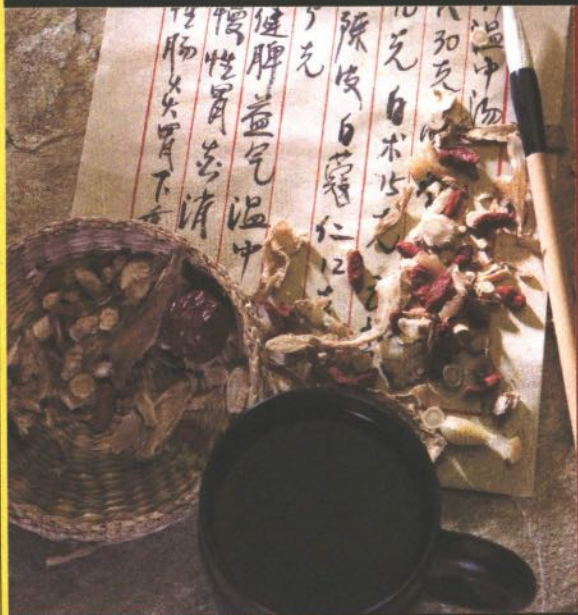 温中汤
30克
克 白术15克
陈皮 白蔻仁12
克
健脾益气 温中
慢性胃炎 消
性肠炎胃下